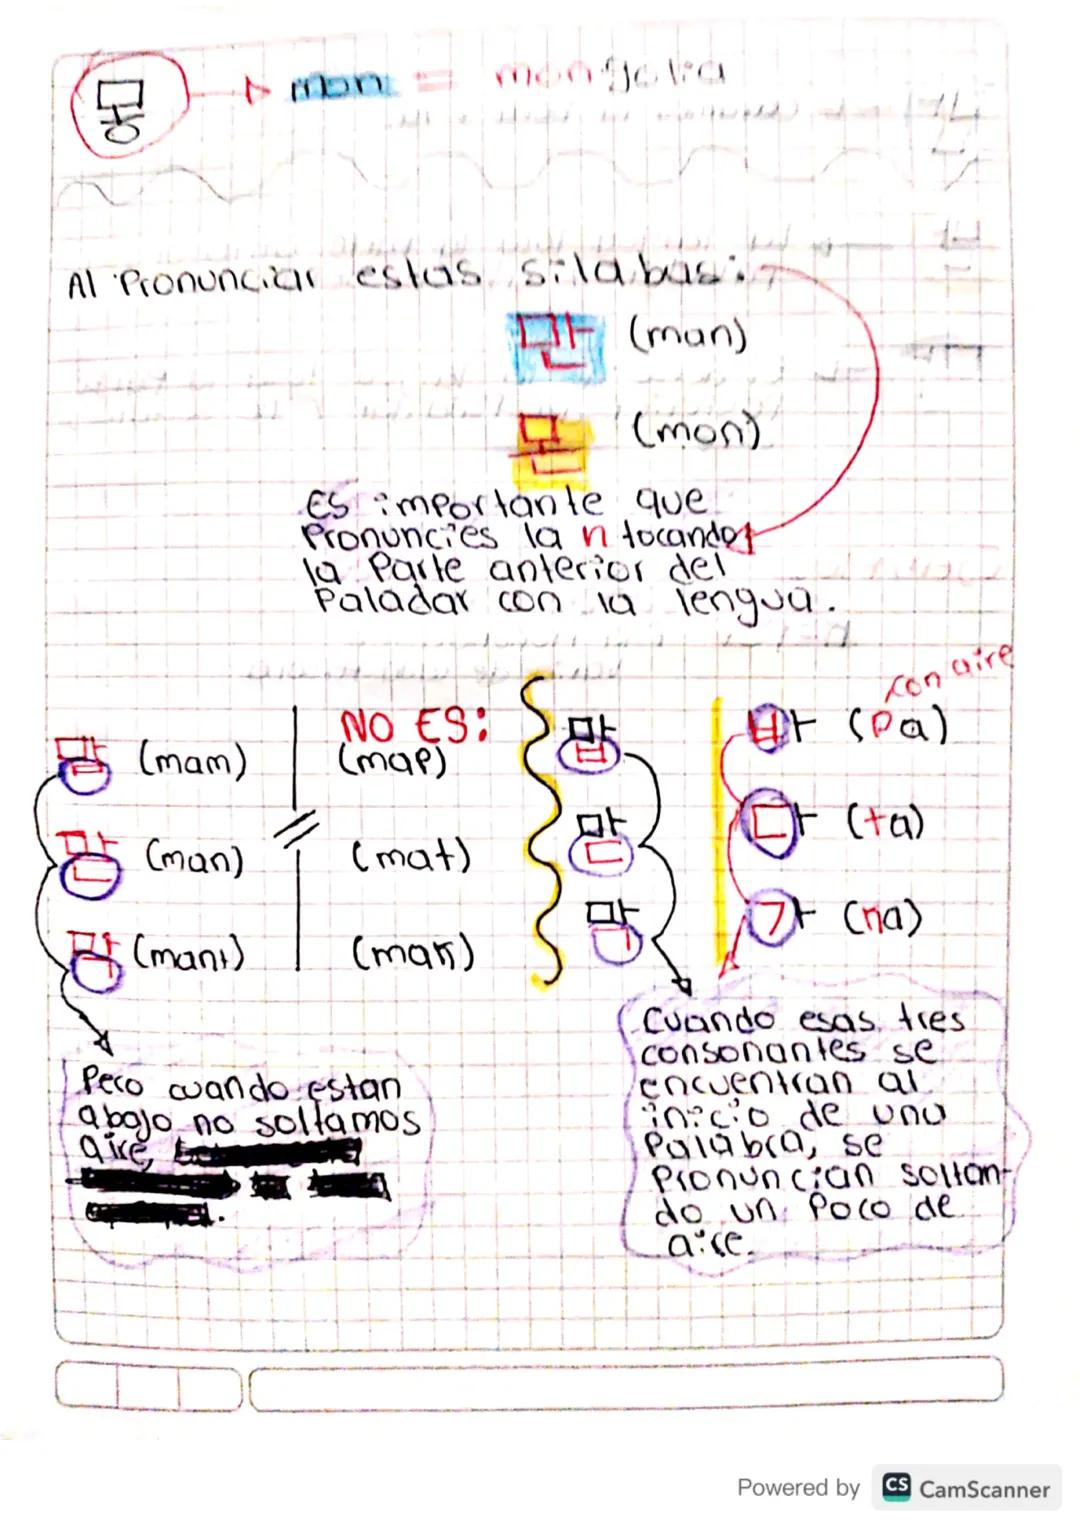 몽 → mon = mongolia
Al Pronunciar estas silabas:
만 (man)
몬 (mon)
Es importante que
Pronuncies la n tocando
la Parte anterior del
Paladar con la lengua.
con aire
NO ES:
맙 (mam) (map) 맙 바 (Pa)
맏 (man) (mat) 맏 다 (ta)
막 (mant) (mak) 막 가
Pero cuando estan
abajo no soltamos
aire,
Cuando esas tres
consonantes se
encuentran al
inicio de una
Palabra, se
Pronuncian soltan-
do un Poco de
aire.
Powered by CS CamScanner